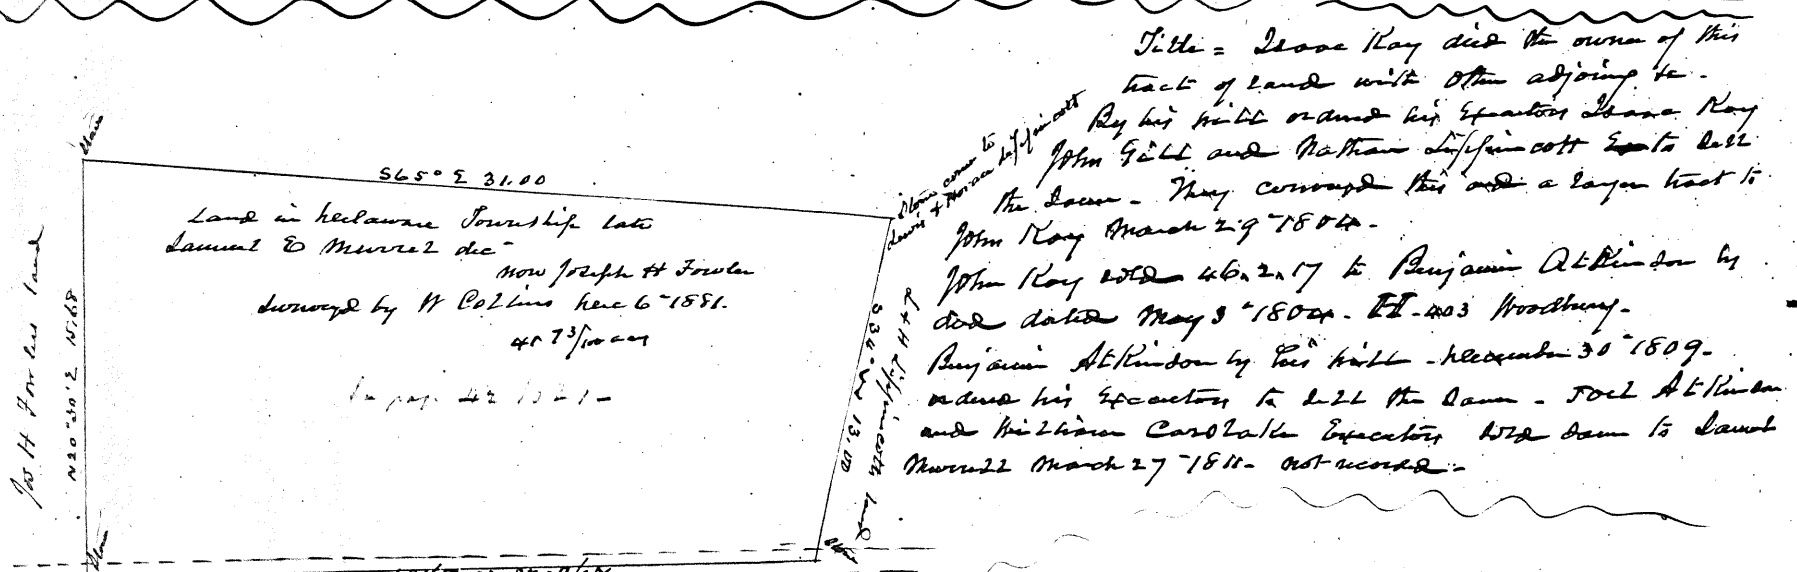 Stone
S65° E 31.00
Stone corner to
Lewis & Horace Lippincott
Land in Delaware Township late
Samuel E Murrel dec
now Joseph H Fowler
Surveyed by W Collins Dec 6 - 1881.
73/100 acs
Jos H Fowlers land
N20°30'E 15.68
S34° W 13.00
L & H Lippincotts land
Stone
Stone
Title = Isaac Kay died the owner of this
tract of land with other adjoing &c -
By his will ordered his Executors Isaac Kay
John Gill and Nathan Lippincott to sell
the same - They conveyed this and a larger tract to
John Kay March 29 - 1804 -
John Kay sold 46.2.17 to Benjamin Atkinson by
deed dated May 3 - 1804 - 403 Woodbury -
Benjamin Atkinson by his will - December 30 - 1809 -
ordered his Executors to sell the same - Joel Atkinson
and William Executors sold same to Samuel
Murrell March 27 - 1811 - not record -